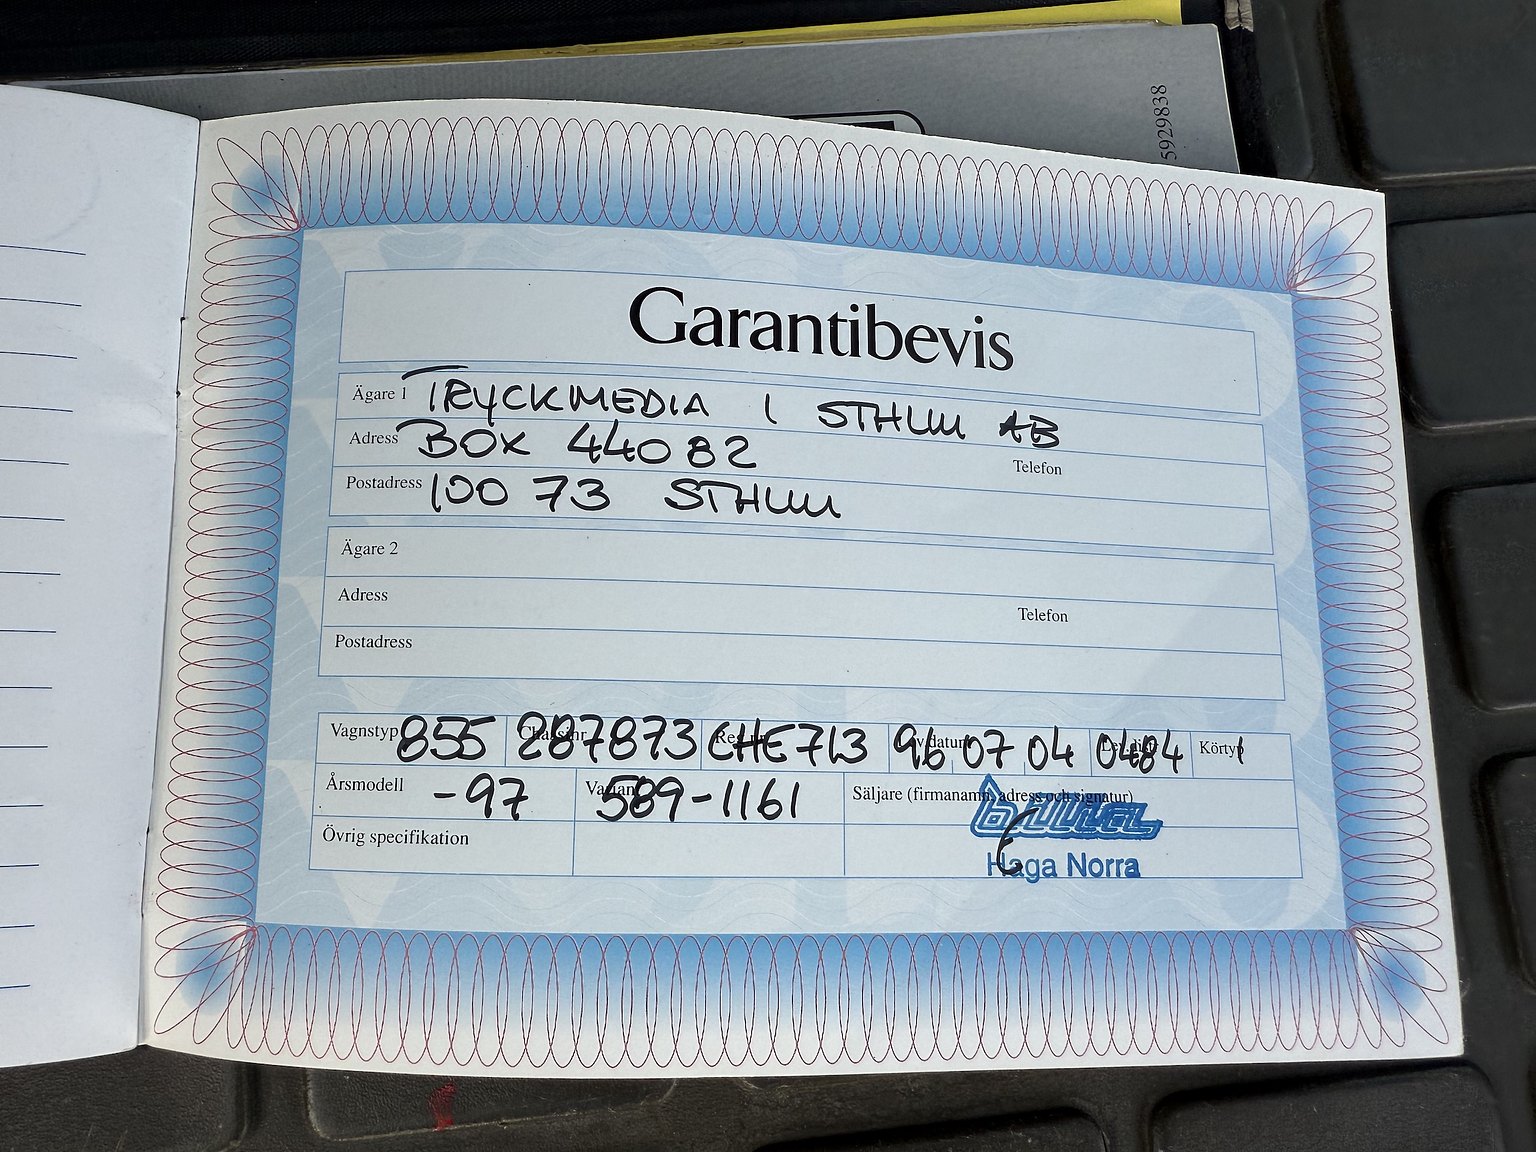 5929838
Garantibevis
Ägare 1 TRYCKMEDIA I STHLM AB
Adress BOX 44082 Telefon
Postadress 100 73 STHLM
Ägare 2
Adress Telefon
Postadress
Vagnstyp 855 Chassinr 287873 Reg nr CHE713 96 07 04 0484 Körtyp 1
Årsmodell -97 Variant 589-1161 Säljare (firmanamn, adress och signatur)
Övrig specifikation
Haga Norra